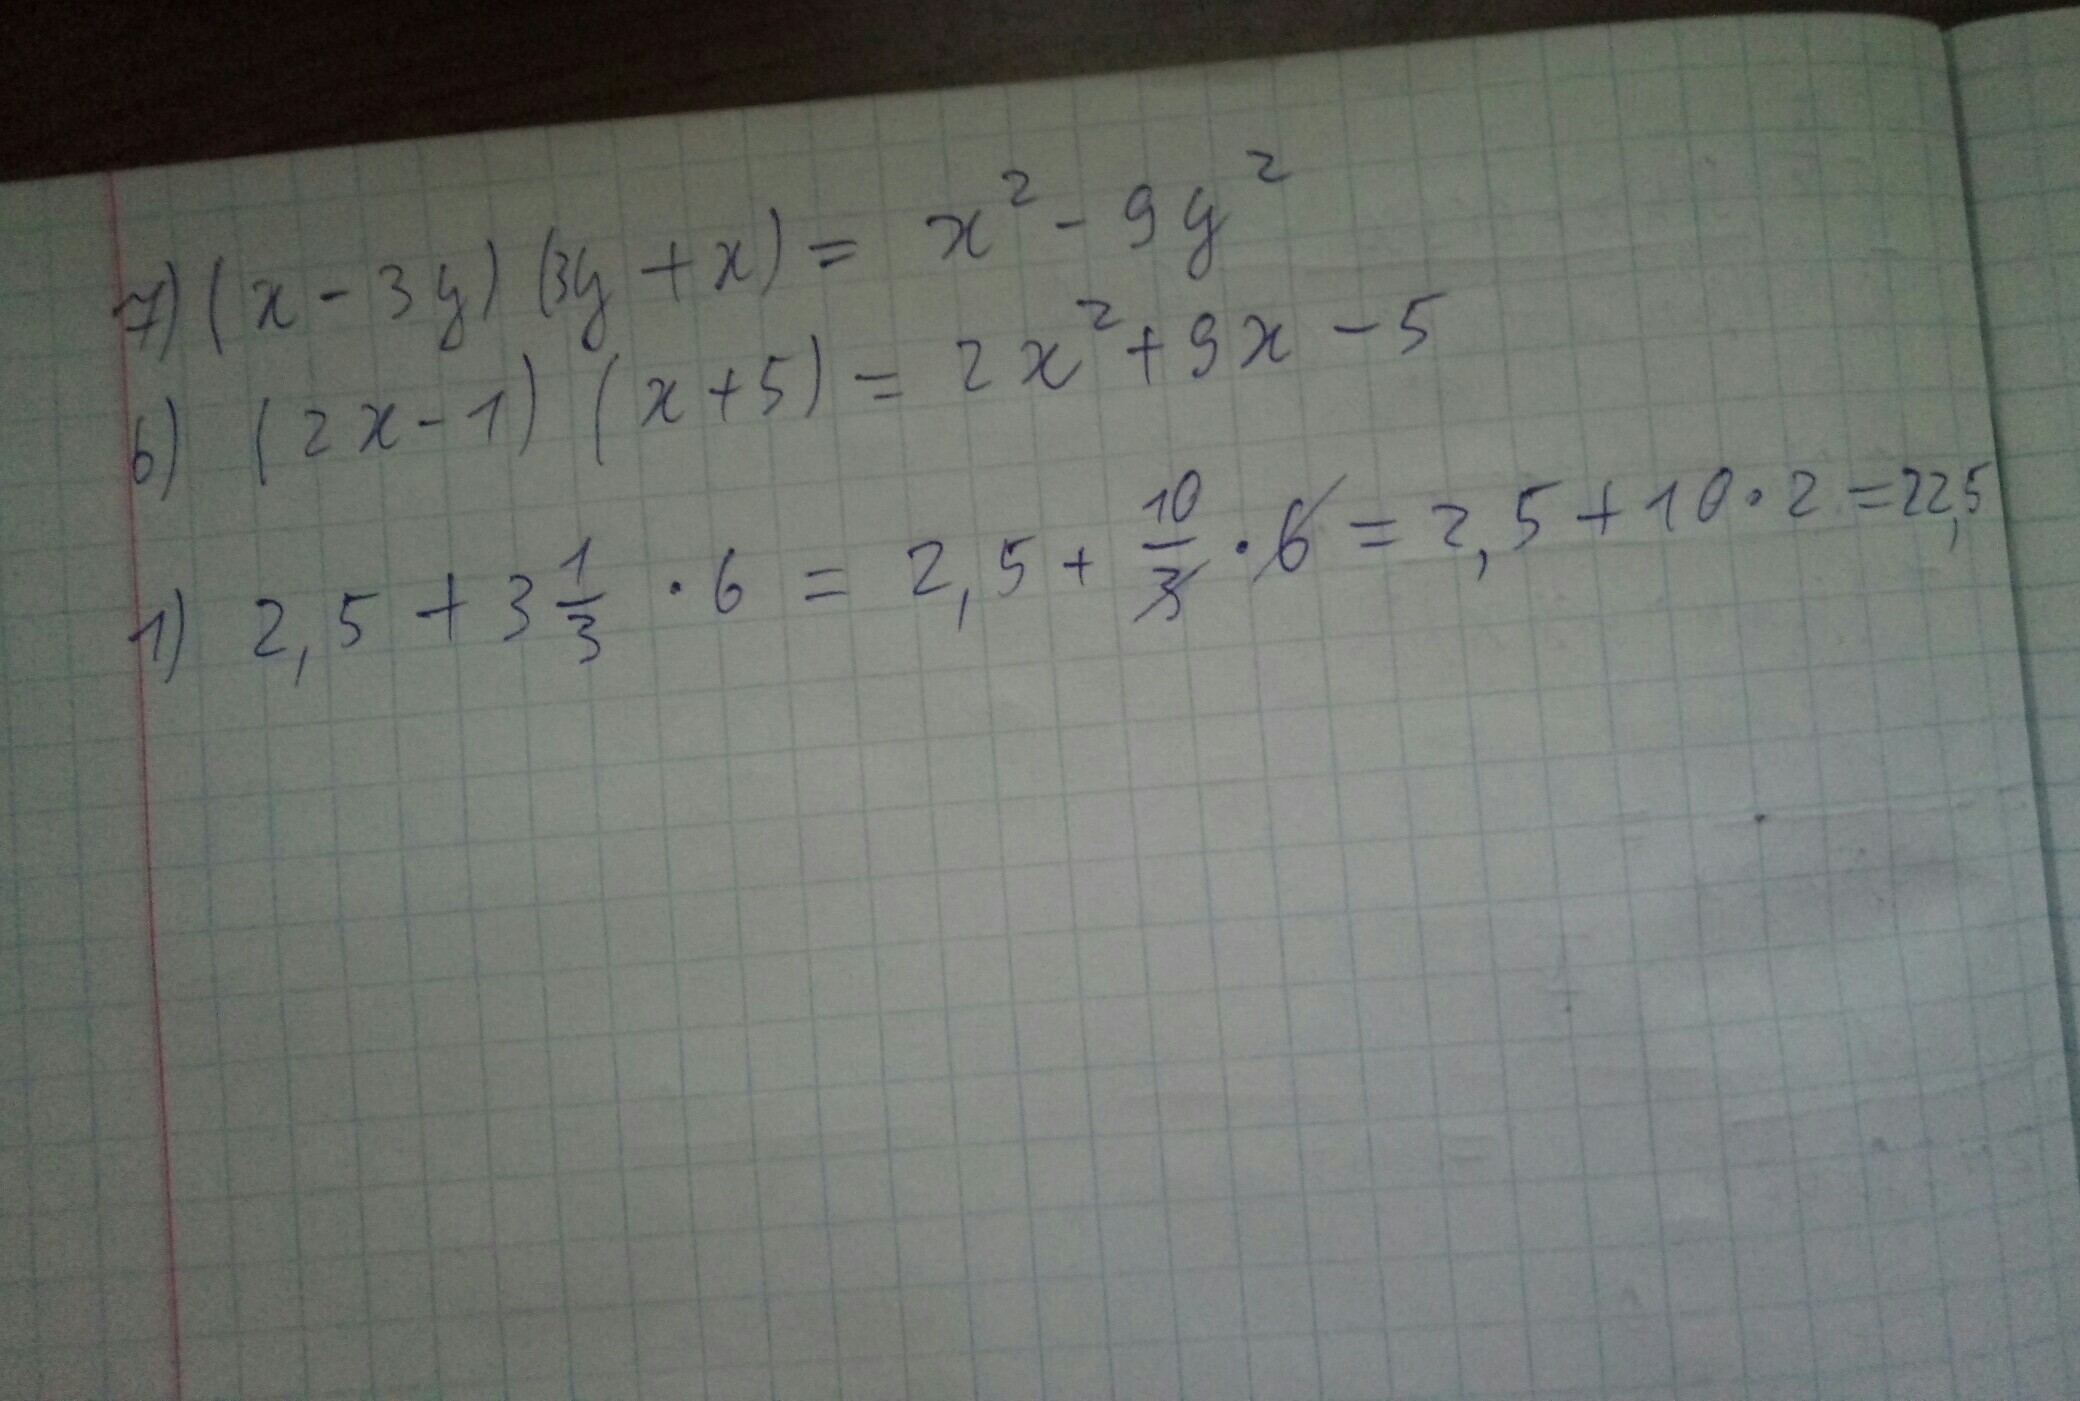 7) (x - 3y) (3y + x) = x² - 9y²
6) (2x - 1) (x + 5) = 2x² + 9x - 5
1) 2,5 + 3 1/3 · 6 = 2,5 + 10/3 · 6 = 2,5 + 10 · 2 = 22,5